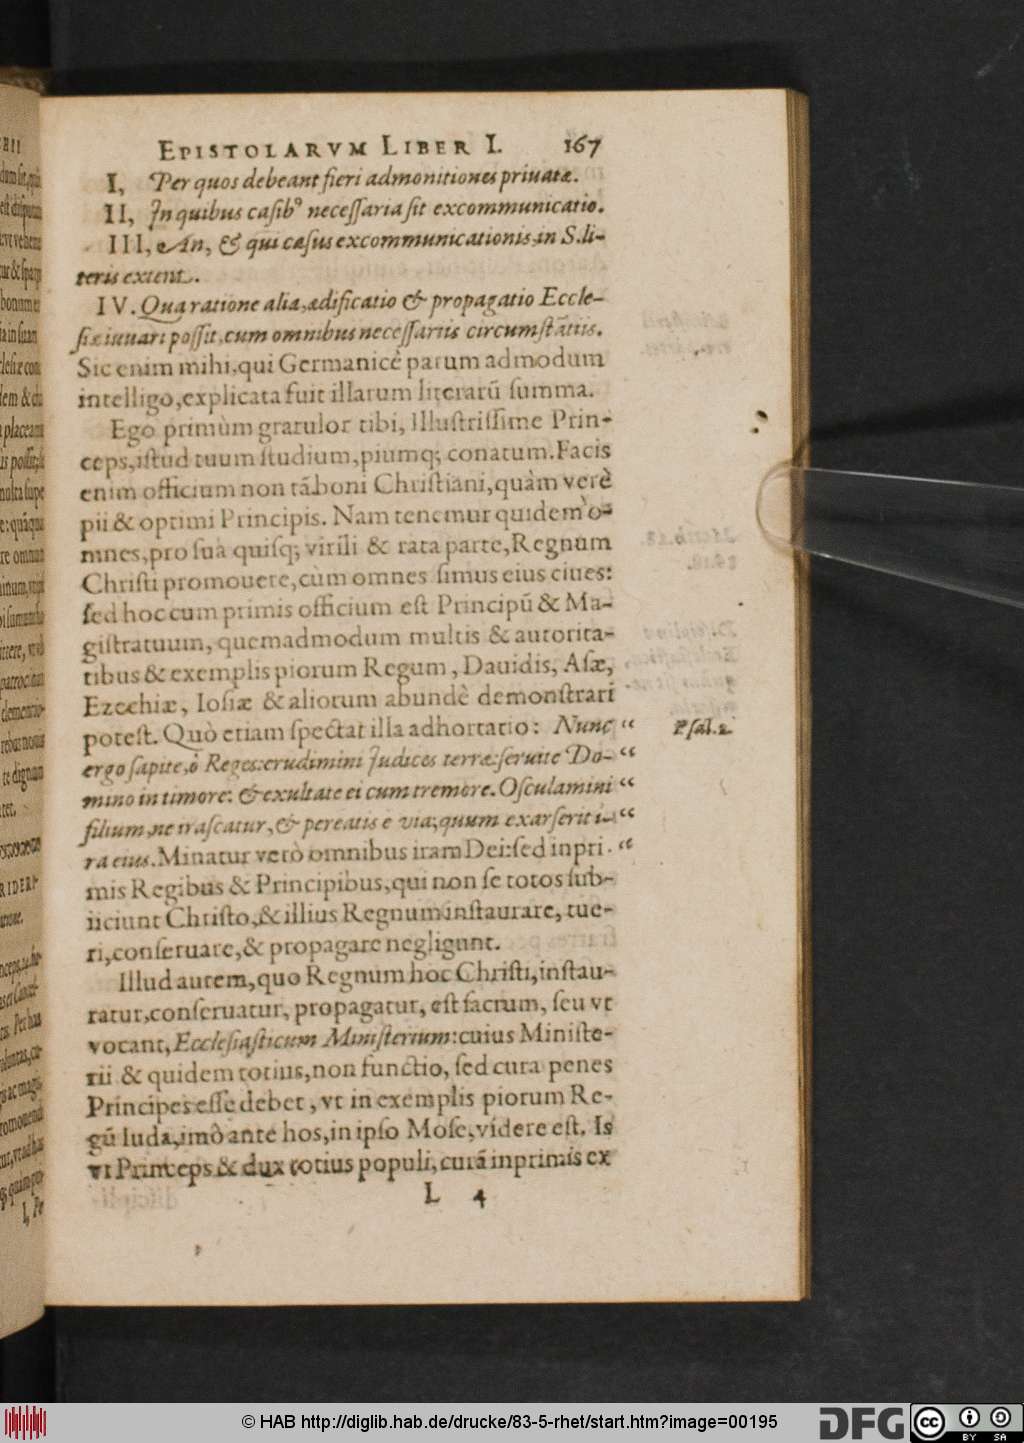 EPISTOLARVM LIBER I. 167
I, Per quos debeant fieri admonitiones priuatæ.
II, In quibus casibꝰ necessaria sit excommunicatio.
III, An, & qui casus excommunicationis, in S. li-
teris extent.
IV. Qua ratione alia, ædificatio & propagatio Eccle-
siæ iuuari possit, cum omnibus necessariis circumstātiis.
Sic enim mihi, qui Germanicé parum admodum
intelligo, explicata fuit illarum literarū summa.
Ego primùm gratulor tibi, Illustrissime Prin-
ceps, istud tuum studium, piumq; conatum. Facis
enim officium non tā boni Christiani, quàm verè
pii & optimi Principis. Nam tenemur quidem o-
mnes, pro sua quisq; virili & rata parte, Regnum
Christi promouere, cùm omnes simus eius ciues:
sed hoc cum primis officium est Principū & Ma-
gistratuum, quemadmodum multis & autorita-
tibus & exemplis piorum Regum, Dauidis, Asæ,
Ezechiæ, Iosiæ & aliorum abundè demonstrari
potest. Quò etiam spectat illa adhortatio: Nunc “ Psal. 2.
ergo sapite, ô Reges: erudimini Iudices terræ: seruite Do- “
mino in timore: & exultate ei cum tremore. Osculamini “
filium, ne irascatur, & pereatis e via; quum exarserit i- “
ra eius. Minatur verò omnibus iram Dei: sed inpri- “
mis Regibus & Principibus, qui non se totos sub-
iiciunt Christo, & illius Regnum instaurare, tue-
ri, conseruare, & propagare negligunt.
Illud autem, quo Regnum hoc Christi, instau-
ratur, conseruatur, propagatur, est sacrum, seu vt
vocant, Ecclesiasticum Ministerium: cuius Ministe-
rii & quidem totius, non functio, sed cura penes
Principes esse debet, vt in exemplis piorum Re-
gū Iuda, imò ante hos, in ipso Mose, vídere est. Is
vt Princeps & dux totius populi, curā inprimis ex
L 4
© HAB http://diglib.hab.de/drucke/83-5-rhet/start.htm?image=00195
DFG
cc BY SA